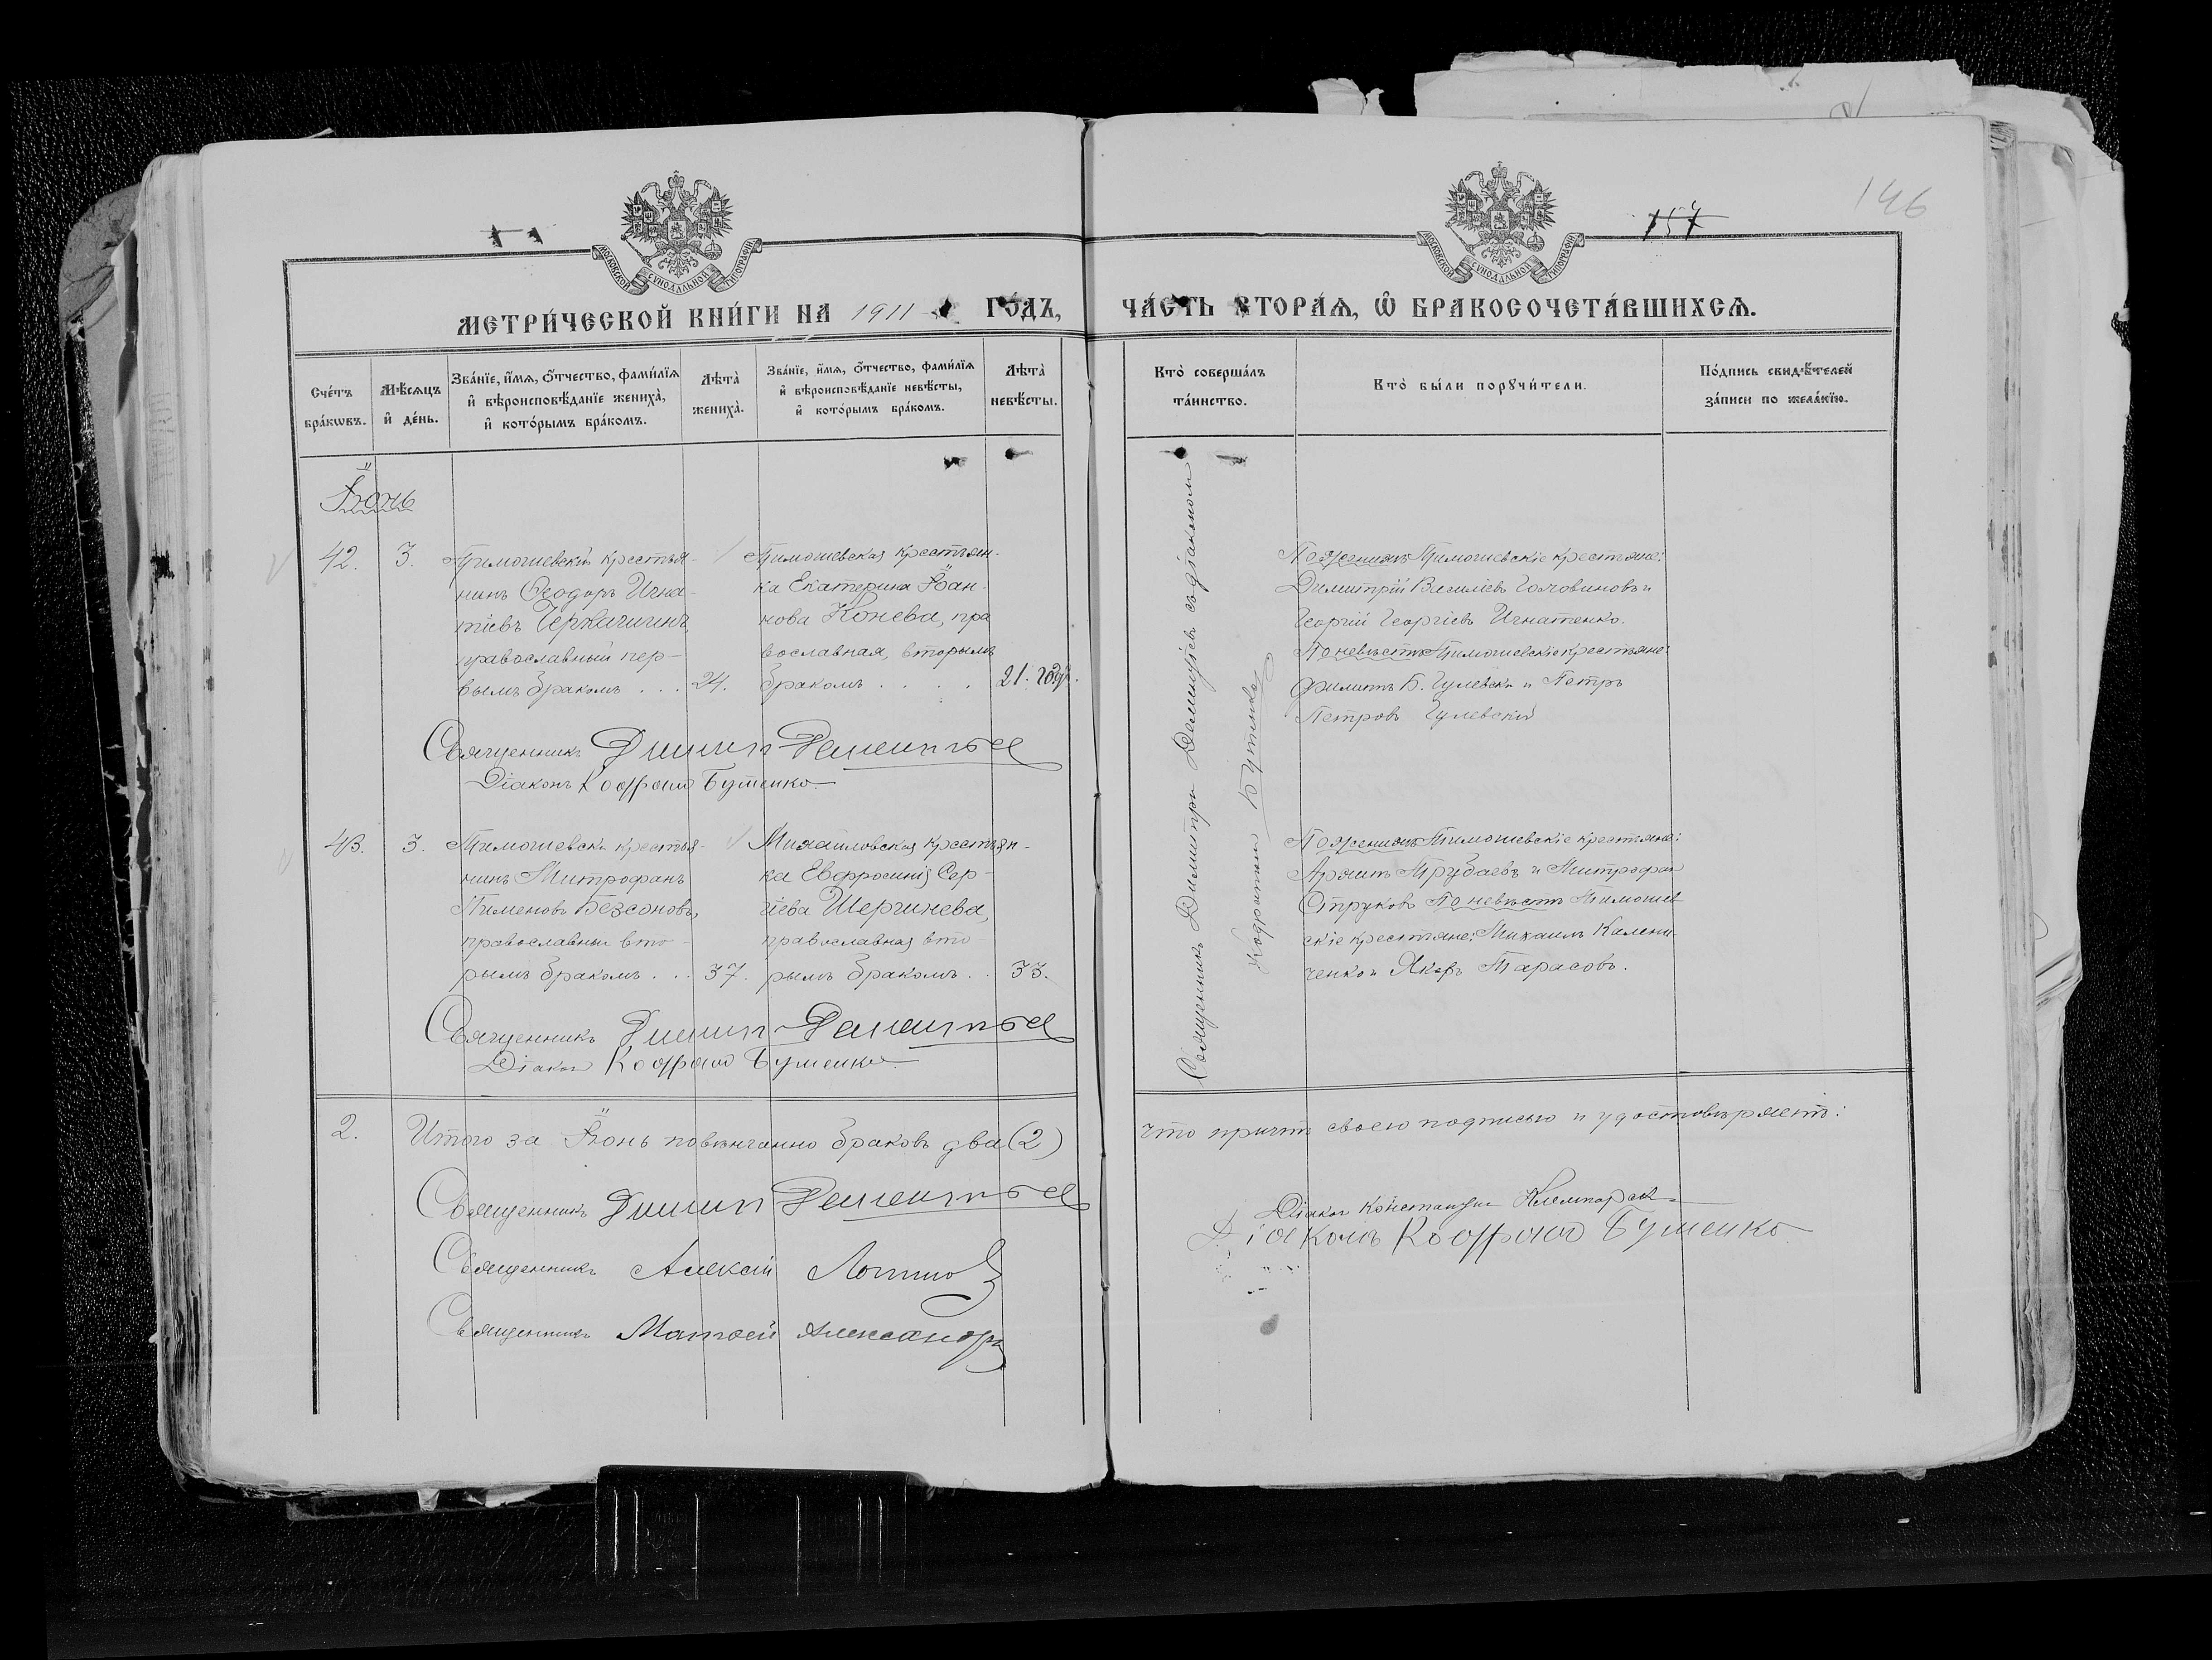 146
157
МОСКОВСКОЙ СУНОДАЛЬНОЙ ТИПОГРАФІИ
МОСКОВСКОЙ СУНОДАЛЬНОЙ ТИПОГРАФІИ
МЕТРИ́ЧЕСКОЙ КНИ́ГИ НА 1911 ГО́ДЪ,
ЧА́СТЬ ВТОРА́Ѧ, Ѽ БРАКОСОЧЕТА́ВШИХСѦ.
Сче́тъ
бра́кѡвъ.
Мѣ́сѧцъ
и҆ де́нь.
Зва́нїе, и҆́мѧ, ѻ҆́тчество, фами́лїѧ
и҆ вѣроисповѣ́данїе жениха̀,
и҆ кото́рымъ бра́комъ.
Лѣта̀
жениха̀.
Зва́нїе, и҆́мѧ, ѻ҆́тчество, фами́лїѧ
и҆ вѣроисповѣ́данїе невѣ́сты,
и҆ кото́рымъ бра́комъ.
Лѣта̀
невѣ́сты.
Кто̀ соверша́лъ
та́инство.
Кто̀ бы́ли порꙋчи́тели.
По́дпись свидѣ́телей
за́писи по жела́нїю.
Іюнь
42.
3.
Тимошевскій крестья-
нинъ Ѳеодоръ Игна-
тіевъ
православный пер-
вымъ бракомъ . . .
24.
Тимошевская крестьян-
ка Екатерина Іоан-
нова Конева, пра
вославная, вторымъ
бракомъ . . . .
21. годъ.
Священникъ Димитрій Деминтьев
Діаконъ Кодратъ Бутенко
Священникъ Димитрій Деминтьевъ съ діакономъ
Кодратомъ Бутенко
По женихѣ Тимошевскіе крестьяне:
Димитрій Василіевъ Головиновъ и
Георгій Георгіевъ Игнатенко.
По невѣстѣ Тимошевскіе крестьяне:
Филиппъ Б. Гулевскій и Петръ
Петровъ Гулевскій
43.
3.
Тимошевскій крестья-
нинъ Митрофанъ
Пименовъ Безсоновъ,
православный вто-
рымъ бракомъ . . .
37.
Михайловская крестьян-
ка Евфросинія Сер-
гіева Шергинева,
православная вто
рымъ бракомъ . .
33.
По женихѣ Тимошевскіе крестьяне:
Трубаевъ и Митрофан
Струковъ По невѣстѣ Тимошев
скіе крестьяне: Михаилъ Калени
ченко и Яковъ Тарасовъ.
Священникъ Димитрій Деминтьев
Діаконъ Кодратъ Бутенко
2.
Итого за Іюнь повѣнчанно браковъ два (2)
что причтъ своею подписью и удостовѣряетъ:
Священникъ Димитрій Деминтьев
Священникъ Алексій
Священникъ Матѳей Александр
Діакон Константин
Діаконъ Кодратъ Бутенко